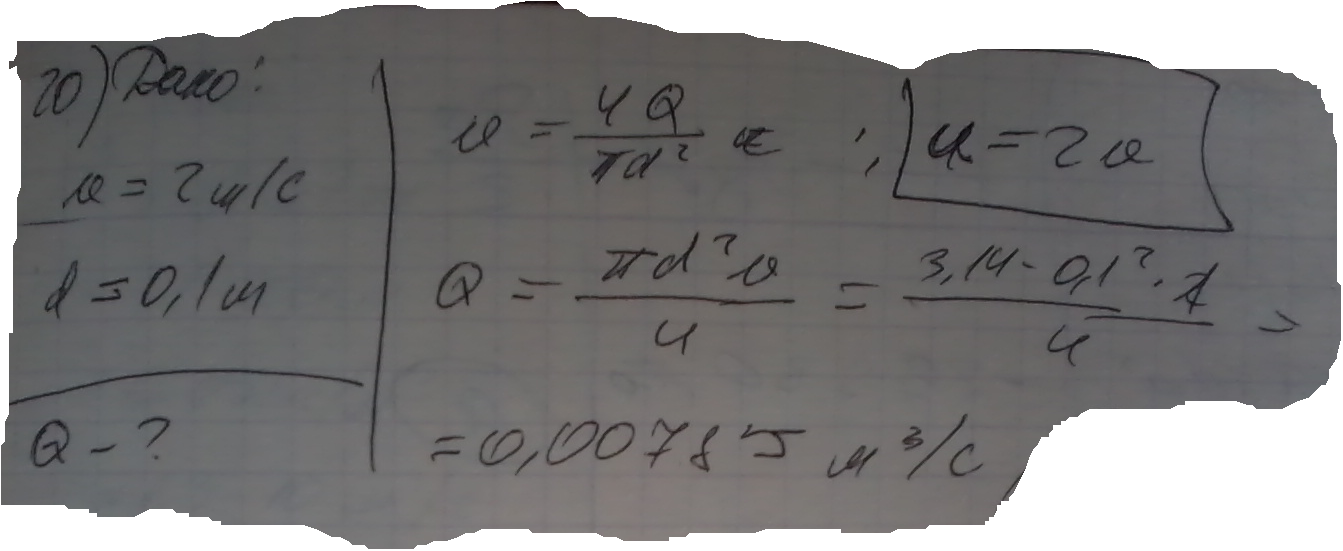 20) Дано:
υ = 2 м/с
d = 0,1 м
Q - ?
υ = 4Q / πd² ; u = 2υ
Q = πd²υ / 4 = 3,14 · 0,1² · 1 / 4 =
= 0,00785 м³/с